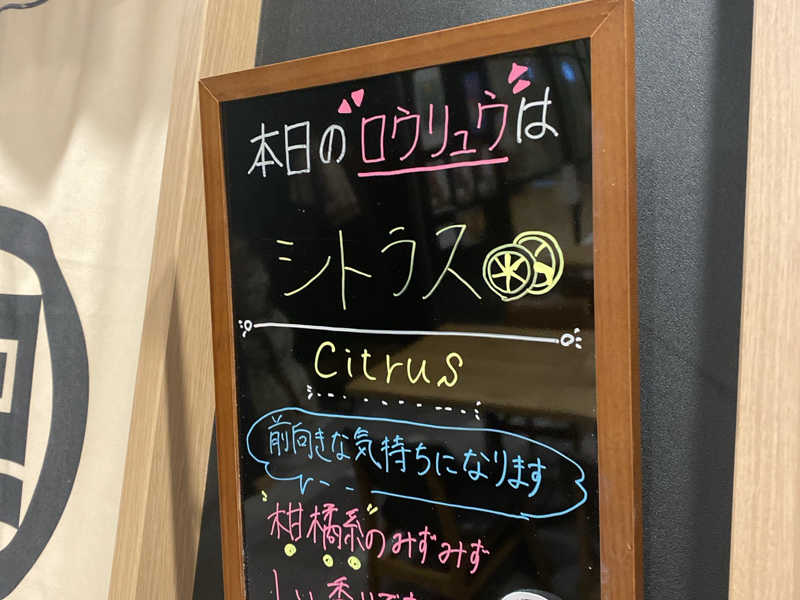 本日の"ロウリュウ"は
シトラス
Citrus
前向きな気持ちになります
"柑橘系"のみずみず
しい香りです